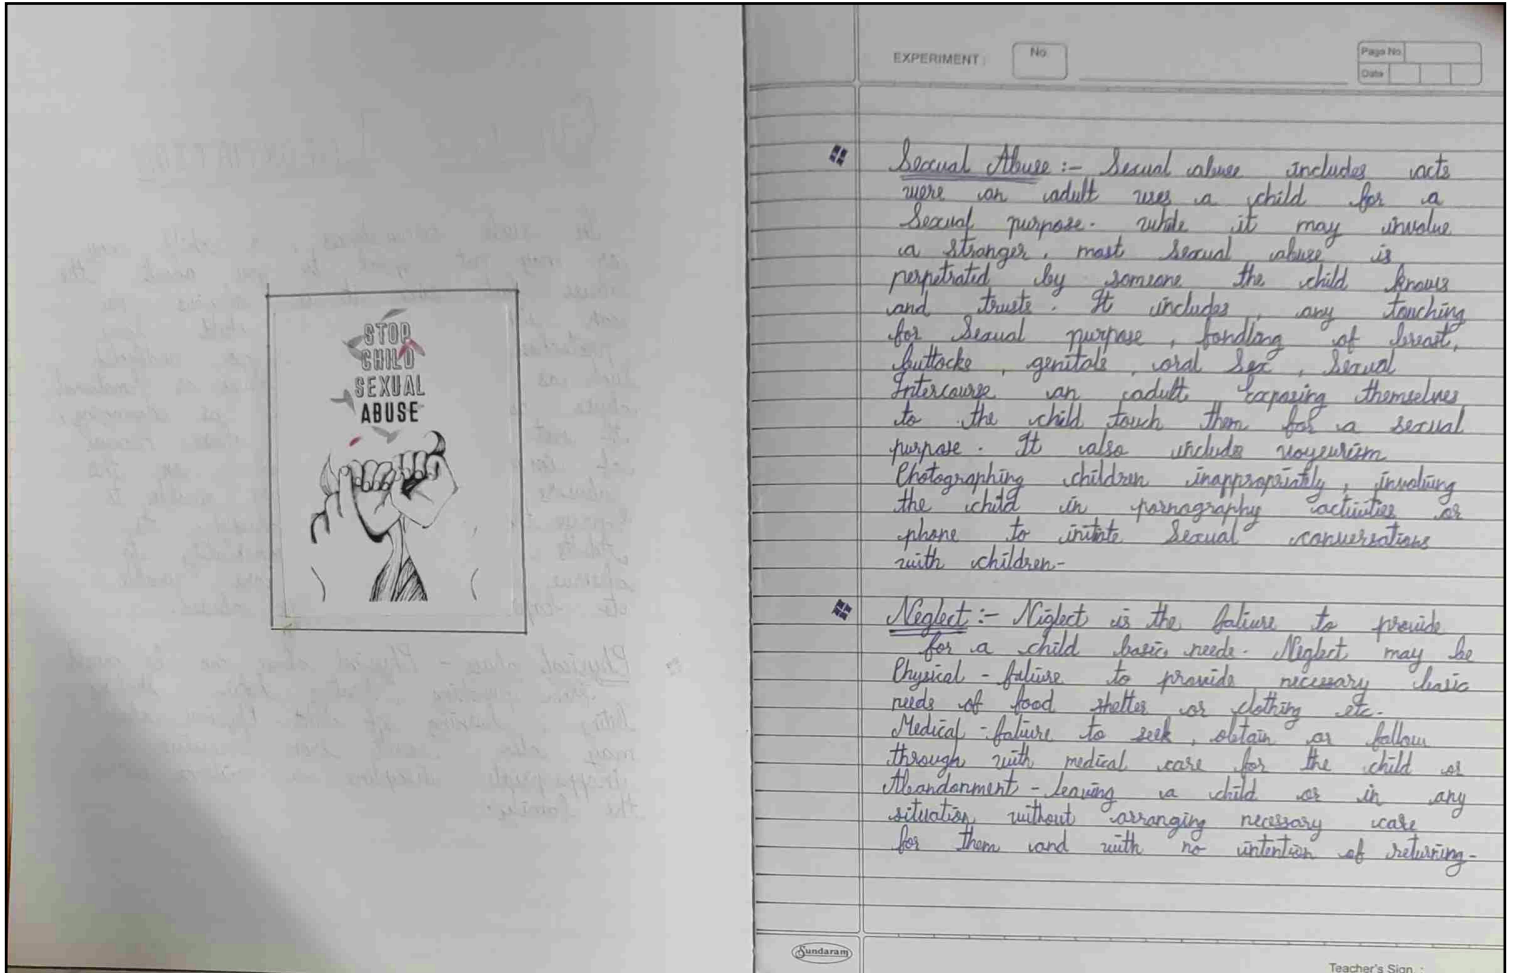 STOP
CHILD
SEXUAL
ABUSE
EXPERIMENT :
No.
Page No
Date
Sexual Abuse :- Sexual abuse includes acts
were an adult uses a child for a
Sexual purpose. while it may involve
a stranger, most sexual abuse is
perpetrated by someone the child knows
and trusts. It includes, any touching
for Sexual purpose, fondling of breast,
buttocks, genitals, oral Sex, Sexual
Intercourse an adult exposing themselves
to the child touch them for a sexual
purpose. It also include voyeurism
Photographing children inappropriately, involving
the child in pornography activities or
phone to initate Sexual conversations
with children-
Neglect :- Niglect is the faliure to provide
for a child basic needs. Neglect may be
Physical - faliure to provide necessary basic
needs of food shelter or clothing etc.
Medical - faliure to seek, obtain or follow
through with medical care for the child or
Abandonment - leaving a child or in any
situation without arranging necessary care
for them and with no intention of returning-
Sundaram
Teacher's Sign :